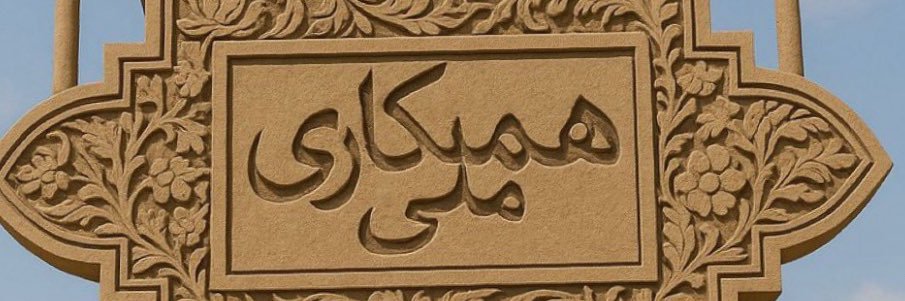 همکاری
ملی